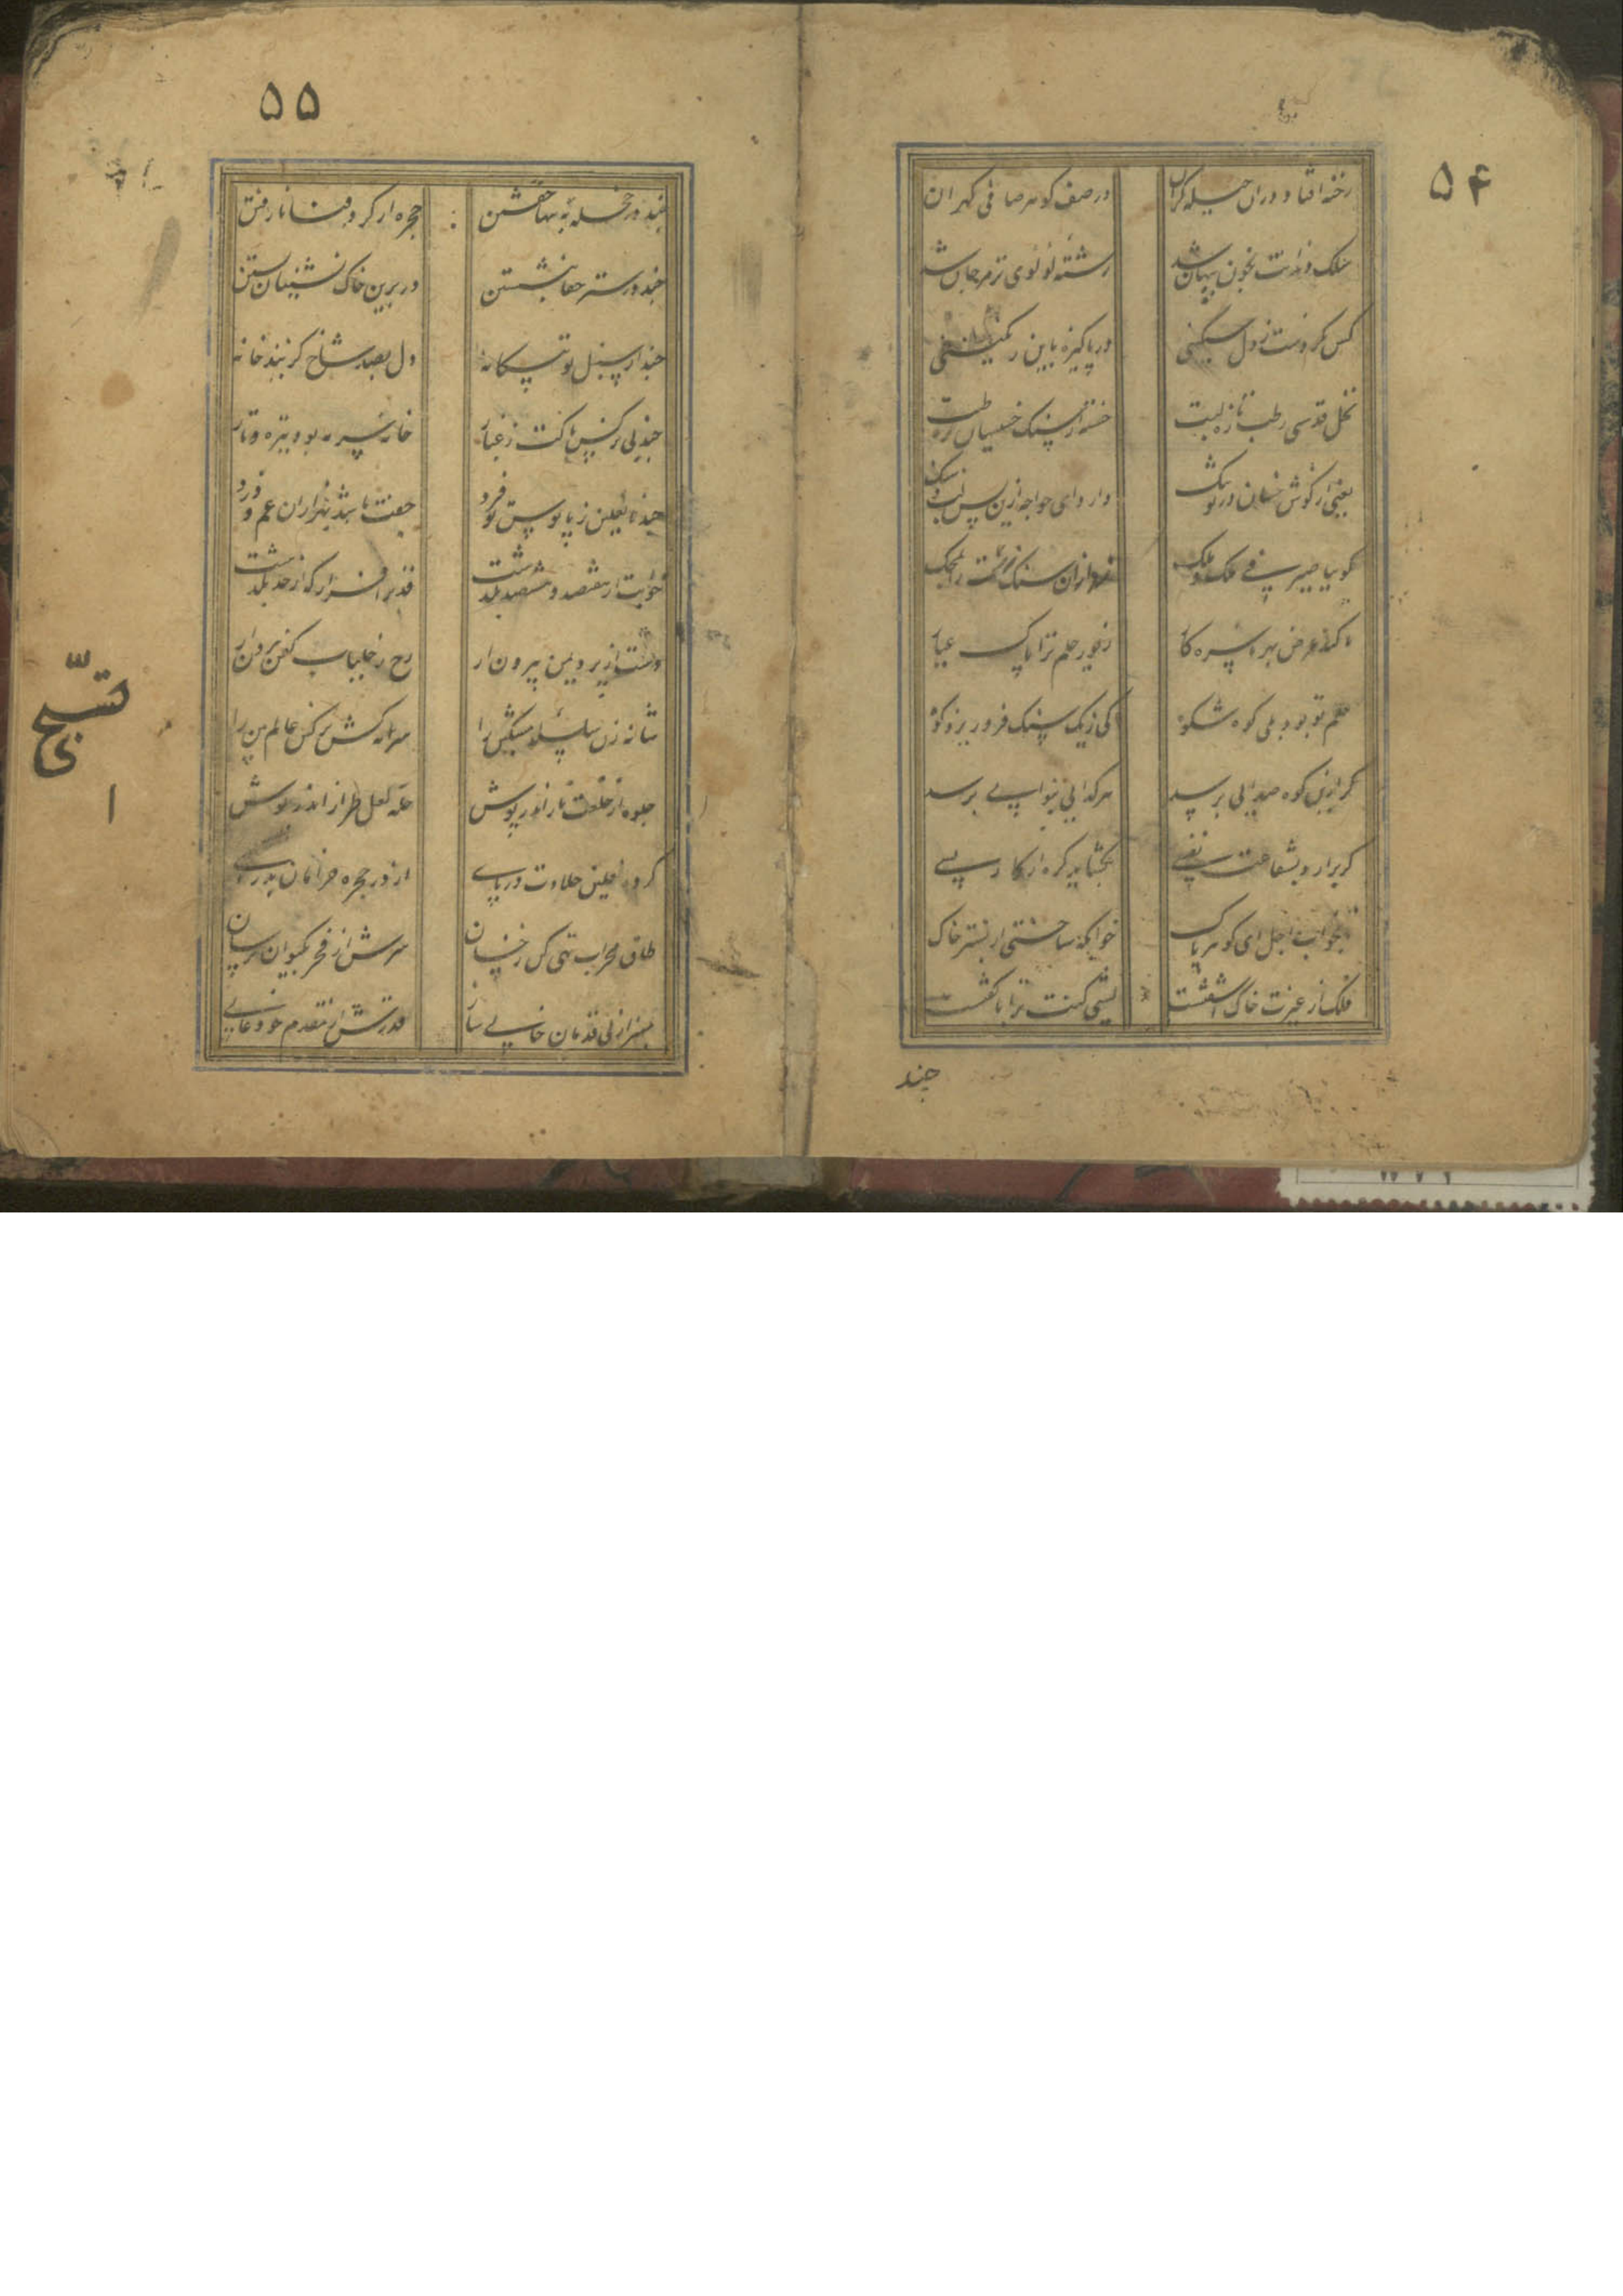 ۵۴
رخنه افتاد دران حیله گران
در صف گوهر صافی گهران
سلک دندانت بخون پنهان شد
رشته لولوی تر مرجان شد
کس نکردست ز دل سنگینی
در پاکیزه باین رنگینی
نخل قدسی رطب تازه لبت
خسته از سنگ خسیسان رطبت
یعنی از گوش نشان در تو تنگ
دارد ای خواجه ازین پس لب
گویی صیرفی ملک و ملک
زد ازان سنگ زرت را بمحک
تا کند عرض بهر بی سره کار
زفور حلم ترا پاک عیار
حلم تو بود بلی کوه شکوه
کی ز یک سنگ فرو ریزد کوه
گر ازین کوه صدایی برسد
هر گدایی بنوایی برسد
گر برارد بشفاعت نفسی
بگشاید گره از کار بسی
بخواب اجل ای گوهر پاک
خوابگه ساختی از بستر خاک
فلک از غیرت خاک آشفتست
لیتنی کنت ترابا گفتست
چند
۵۵
چند در حجله تنها خفتن
حجره از گرد فنا نارفتن
چند در ستر حقا بنشستن
در برین خاک نشینان بستن
چند از سنبل تو بی شانه
دل بصد شاخ کند خانه
چند بی نرگس پاکت ز غبار
خانه سرمه بود تیره و تار
چند نعلین ز پابوس تو فرد
جفت باشد بهزاران غم و درد
خوبیت از هفتصد و هشتصد بگذشت
قد برافراز که از حد بگذشت
دست از برد یمن بیرون آر
رخ ز جلباب کفن بیرون آر
شانه زن سلسله مشکین را
سرمه کش نرگس عالم بین را
جلوه از خلعت ناز اندر پوش
حله لعل طراز اندر پوش
کرده نعلین حلاوت در پای
از در حجره خرامان بدر آی
طاق محراب تهی کن ز خسان
سرش از فخر بکیوان برسان
منبر از بی قدمان خالی ساز
قدرش از مقدم خود عالی ساز
تسبیح
۱